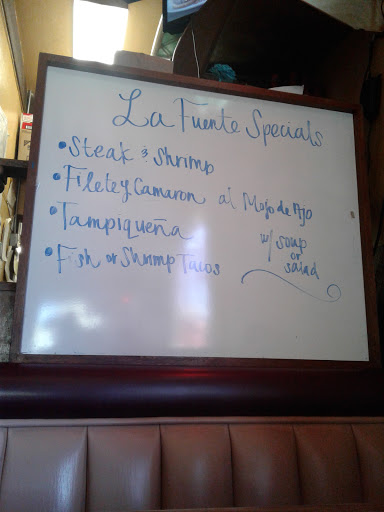 La Fuente Specials
• Steak & Shrimp
• Filete y Camaron al Mojo de Ajo
• Tampiqueña
• Fish or Shrimp Tacos
w/ soup
or
salad